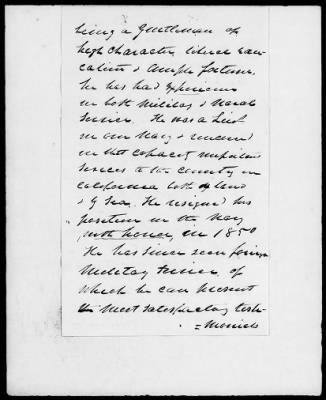 being a Gentleman of
high character, liberal edu-
cation & ample fortune.
he has had experience
in both Military & Naval
Service. He was a Lieut
in our Navy & rendered
in that capacity important
services to the country in
California both by land
& by Sea. He resigned his
position in the Navy
with honor, in 1850
He has since seen foreign
Military Service, of
which he can present
the most satisfactory testi-
=monials